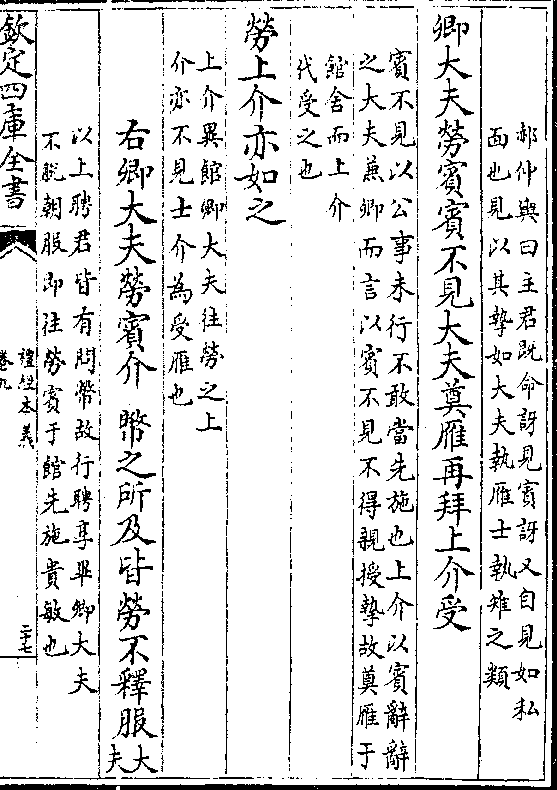 郝仲輿曰主君既命訝見賓訝又自見如私
面也見以其摯如大夫執雁士執雉之類
卿大夫勞賓賓不見大夫奠雁再拜上介受
賓不見以公事未行不敢當先施也上介以賓辭辭
之大夫兼卿而言以賓不見不得親授摯故奠雁于
館舍而上介
代受之也
勞上介亦如之
上介異館卿大夫往勞之上
介亦不見士介為受雁也
右卿大夫勞賓介 幣之所及皆勞不釋服大
夫
以上聘君皆有問幣故行聘享畢卿大夫
不脫朝服即往勞賓于館先施貴敏也
欽定四庫全書
禮經本義
卷九
二十七